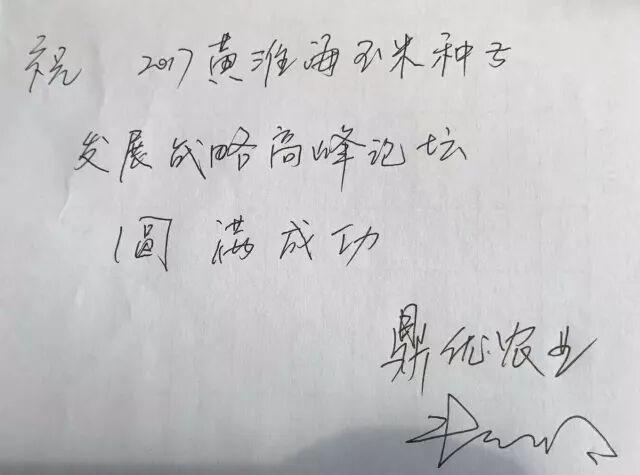 祝 2017黄淮海玉米种子
发展战略高峰论坛
圆满成功
鼎优农业